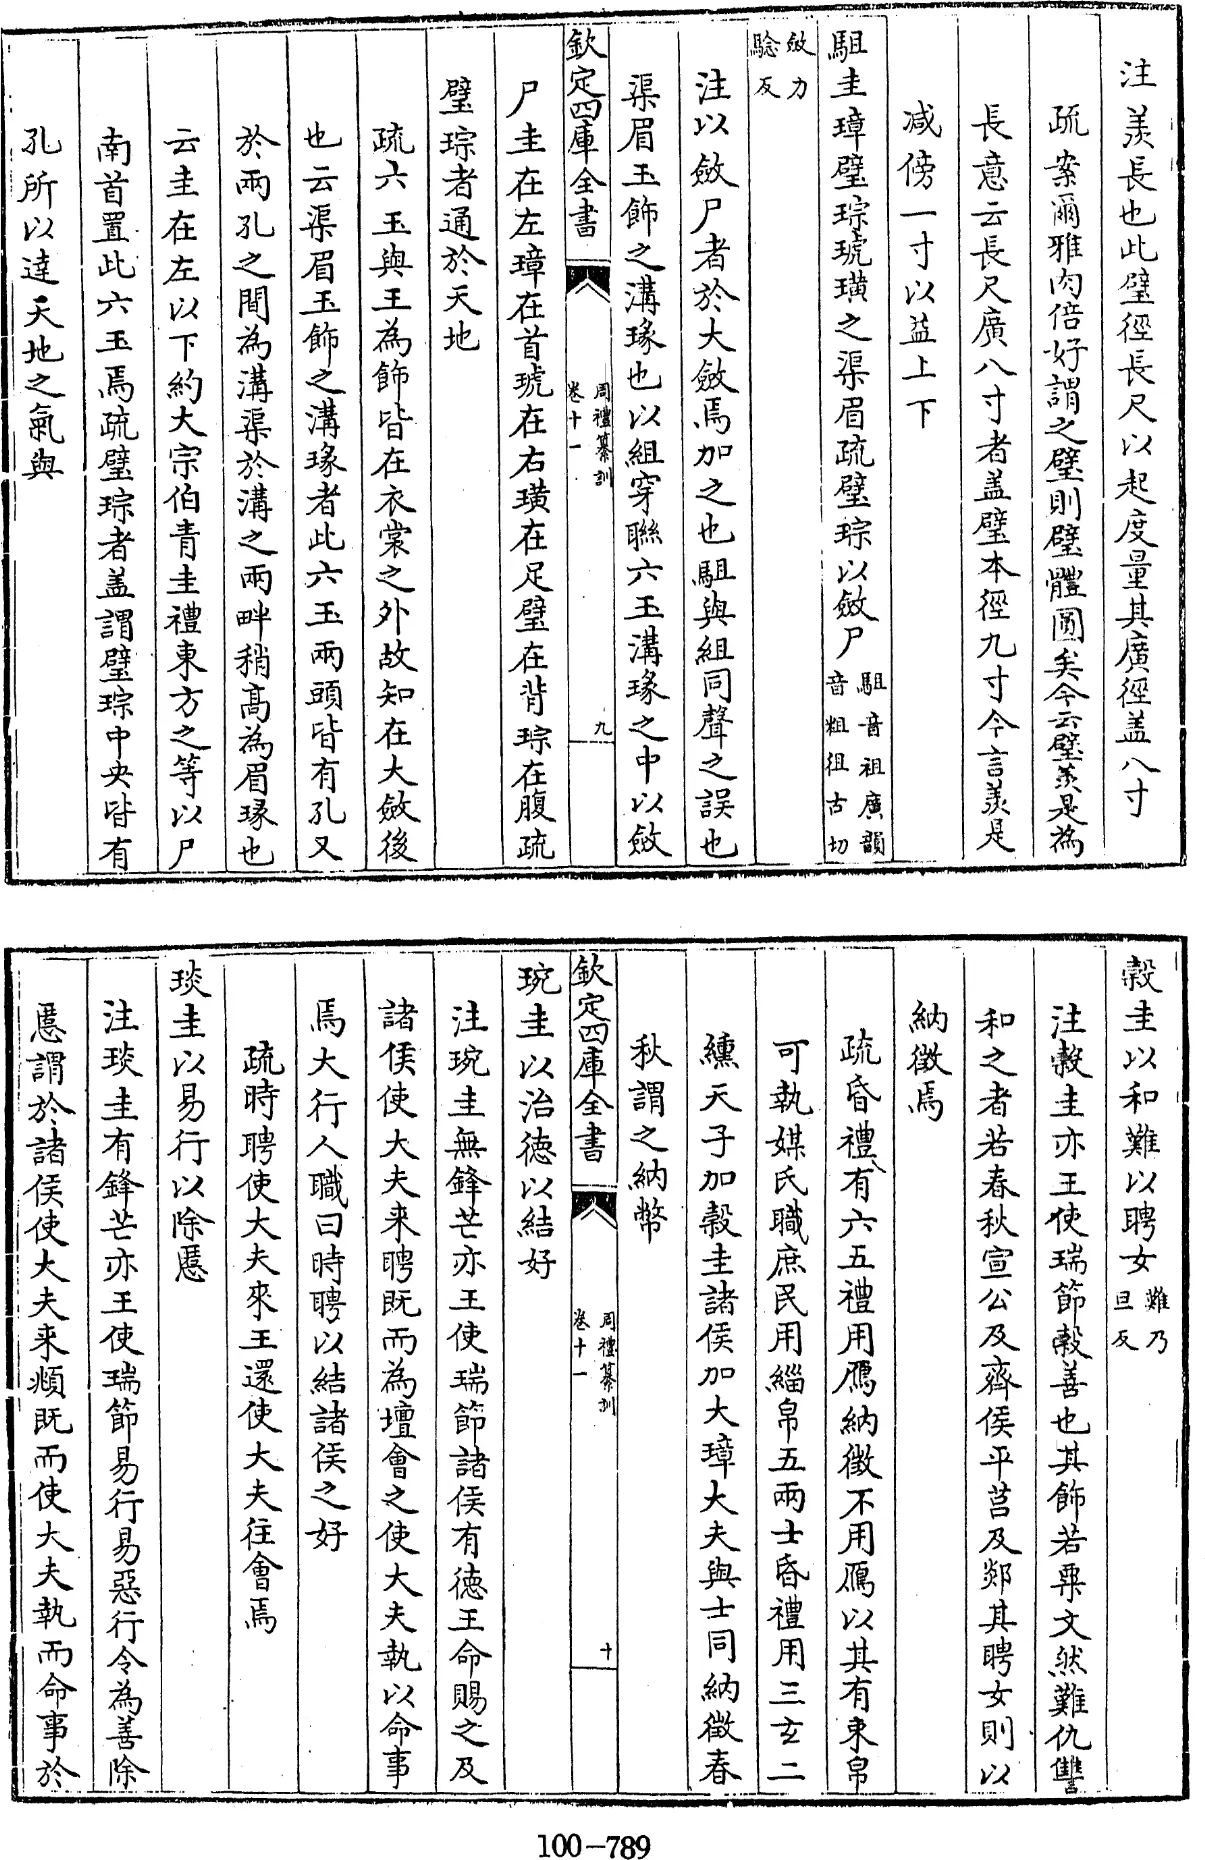 注羨長也此璧徑長尺以起度量其廣徑盖八寸
疏案爾雅肉倍好謂之璧則璧體圓矣今云璧羨是為
長意云長尺廣八寸者盖璧本徑九寸今言羨是
减傍一寸以益上下
駔圭璋璧琮琥璜之渠眉疏璧琮以斂尸駔音祖廣韻
音粗徂古切
斂力
驗反
注以斂尸者於大斂焉加之也駔與組同聲之誤也
渠眉玉飾之溝瑑也以組穿聯六玉溝瑑之中以斂
欽定四庫全書
周禮纂訓
卷十一
九
尸圭在左璋在首琥在右璜在足璧在背琮在腹疏
璧琮者通於天地
疏六玉與王為飾皆在衣裳之外故知在大斂後
也云渠眉玉飾之溝瑑者此六玉兩頭皆有孔又
於兩孔之間為溝渠於溝之兩畔稍髙為眉瑑也
云圭在左以下約大宗伯青圭禮東方之等以尸
南首置此六玉焉疏璧琮者盖謂璧琮中央皆有
孔所以達天地之氣與
榖圭以和難以聘女難乃
旦反
注榖圭亦王使瑞節榖善也其飾若粟文然難仇讐
和之者若春秋宣公及齊侯平莒及郯其聘女則以
納徵焉
疏昏禮有六五禮用鴈納徵不用鴈以其有束帛
可執媒氏職庶民用緇帛五兩士昏禮用三玄二
纁天子加榖圭諸侯加大璋大夫與士同納徵春
秋謂之納幣
欽定四庫全書
周禮纂訓
卷十一
十
琬圭以治德以結好
注琬圭無鋒芒亦王使瑞節諸侯有德王命賜之及
諸侯使大夫来聘既而為壇會之使大夫執以命事
焉大行人職曰時聘以結諸侯之好
疏時聘使大夫來王還使大夫往會焉
琰圭以易行以除慝
注琰圭有鋒芒亦王使瑞節易行易惡行令為善除
慝謂於諸侯使大夫来覜既而使大夫執而命事於
100-789